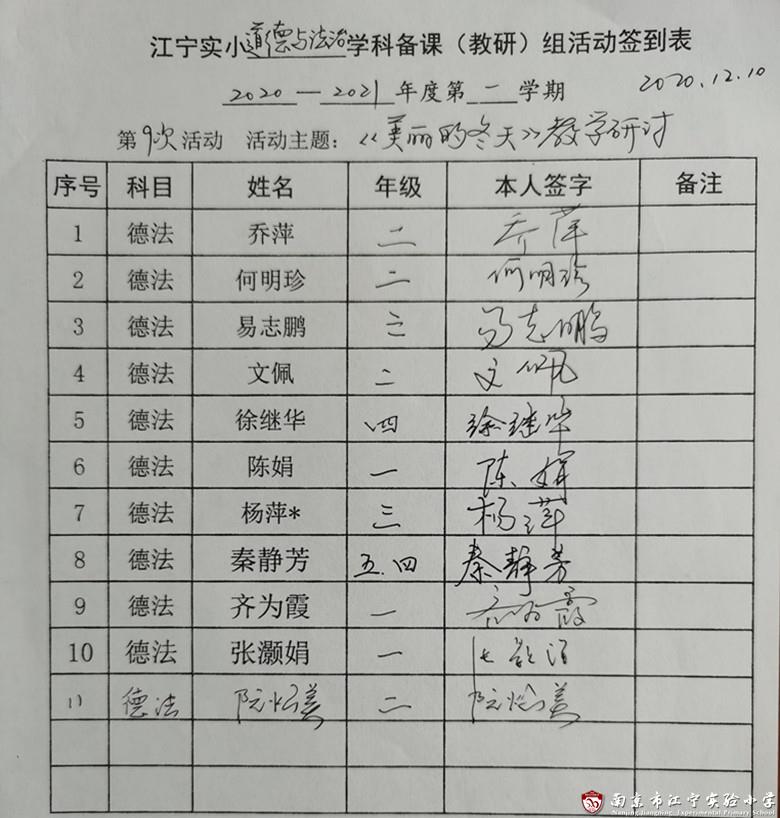 江宁实小道德与法治学科备课（教研）组活动签到表
2020—2021年度第二学期
2020.12.10
第9次活动 活动主题：《美丽的冬天》教学研讨
序号 科目 姓名 年级 本人签字 备注
1 德法 乔萍 二 乔萍
2 德法 何明珍 二 何明珍
3 德法 易志鹏 三 易志鹏
4 德法 文佩 二 文佩
5 德法 徐继华 四 徐继华
6 德法 陈娟 一 陈娟
7 德法 杨萍* 三 杨萍
8 德法 秦静芳 五.四 秦静芳
9 德法 齐为霞 一 齐为霞
10 德法 张灏娟 一
11 德法 二
南京市江宁实验小学
Nanjing Jiangning Experimental Primary School